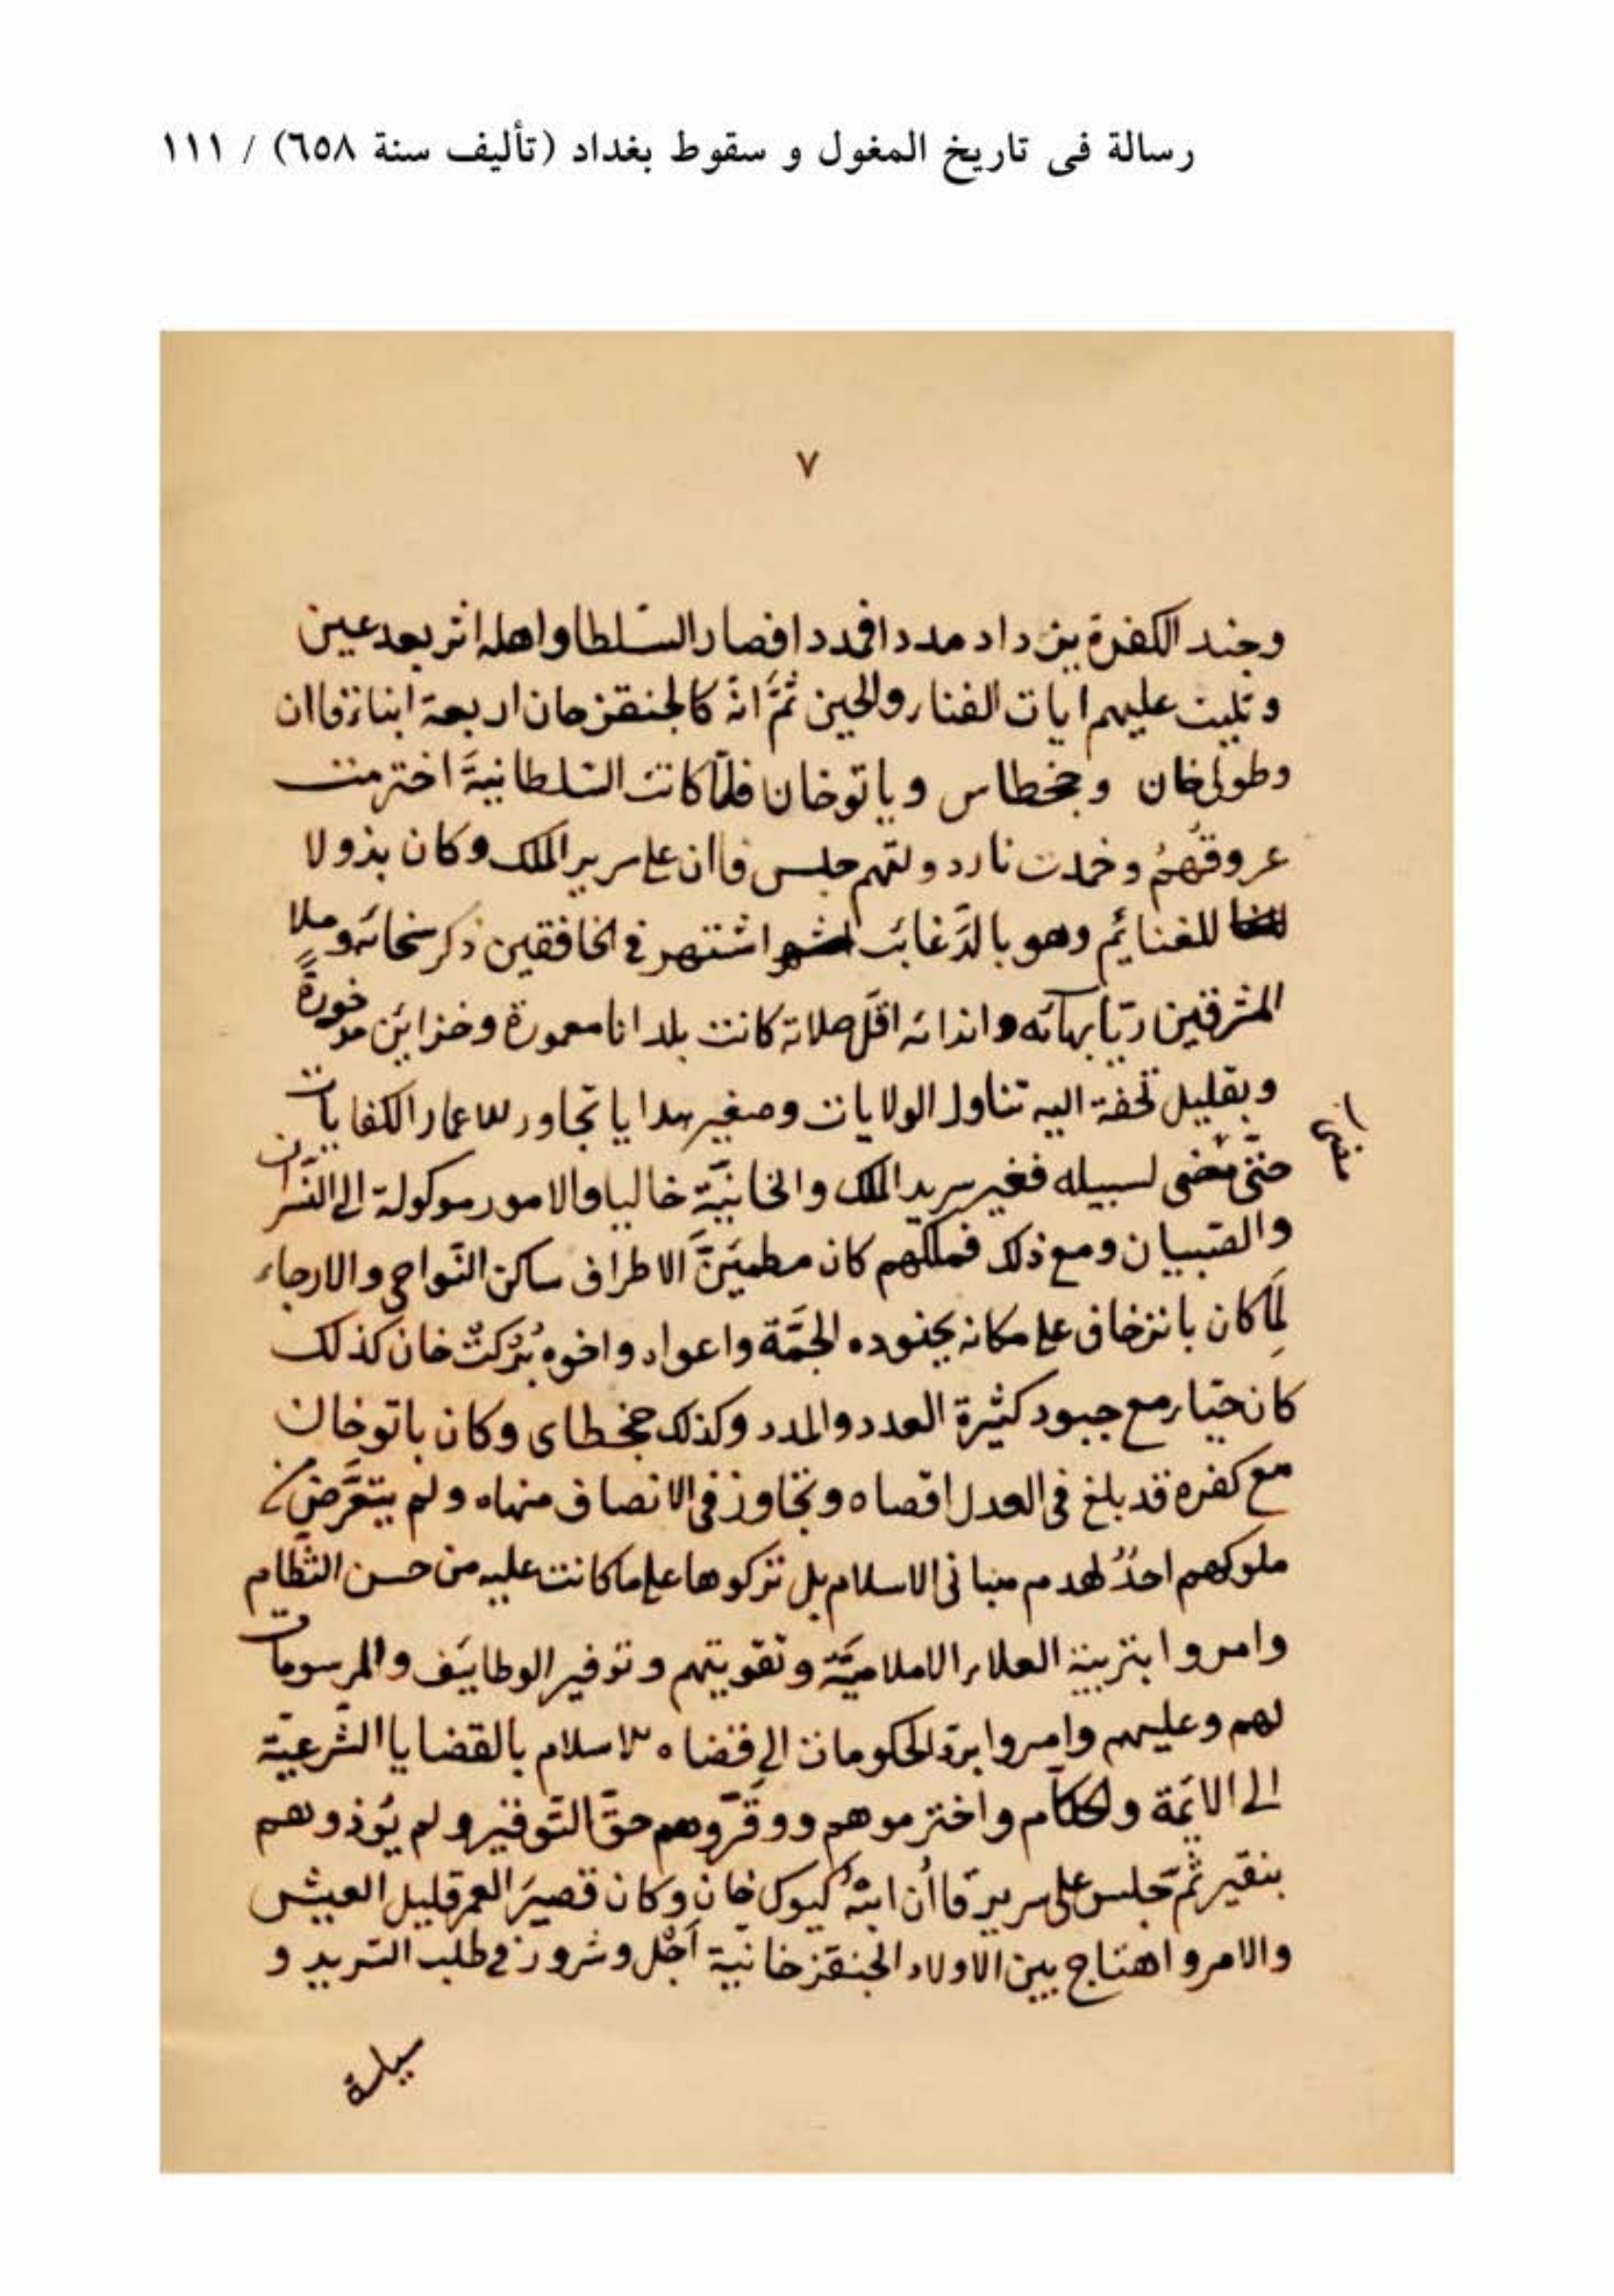 رسالة فى تاريخ المغول و سقوط بغداد (تأليف سنة ٦٥٨) / ١١١
٧
وجند الكفرة يزداد مددا فمددا فصار السلطا واهله اثر بعد عين
و تليت عليهم ايات الفنا والحين ثمَّ انّه كا لجنقز خان اربعة ابناء قاان
وطولى خان وجخطاى و باتوخان فلمّا كانت السّلطانيةَ اخترمت
عروقهُم و خمدت نار دولتهم جلس قاان على سرير الملك وكان بذولا
للغنايم وهو بالدَّغائب اشتهر فى الخافقين ذكر سخائه وملا
المشرقين ريّا بهائه واندائه اقلّ صلاته كانت بلدانا معمورة وخزاين موخورةً
وبقليل تحفة اليه تناول الولايات وصغير هدايا تجاور للاعمار الكفايات
حتّى مضى لسبيله فغبر سرير الملك والخانيّة خاليا والامور موكولة الى النّسوان
والصّبيان ومع ذلك فملكهم كان مطمئنَّ الاطراف ساكن النّواحى والارجاء
لَمّا كان باتوخان على مكانه بجنوده الجمَّة واعوان واخوه بُرْكتْ خان كذلك
كان حيّا مع جنود كثيرة العدد والمدد وكذلك جخطاى وكان باتوخان
مع كفره قد بلغ فى العدل اقصاه وتجاوز فى الانصاف منهاه ولم يتعرَّض من
ملوكهم احدٌ لهدم مبانى الاسلام بل تركوها على ما كانت عليه من حسن النّظام
وامروا بتربية العلاء الاسلاميَّة و تقويتهم و توفير الوظايف والمرسومات
لهم وعليهم وامروا بردّ الحكومات الى قضاه الاسلام بالقضايا الشّرعيّة
الى الائمّة والحكّام واخترموهم ووقّروهم حقّ التّوقير ولم يُوذوهم
بنقير ثمَّ جلس على سرير قاأن ابنُهُ كيوك خان وكان قصيرَ العمر قليل العيش
والامر واهتاج بين الاولاد الجنقزخانيّة اَجْل وشرور فى طلب السّرير و